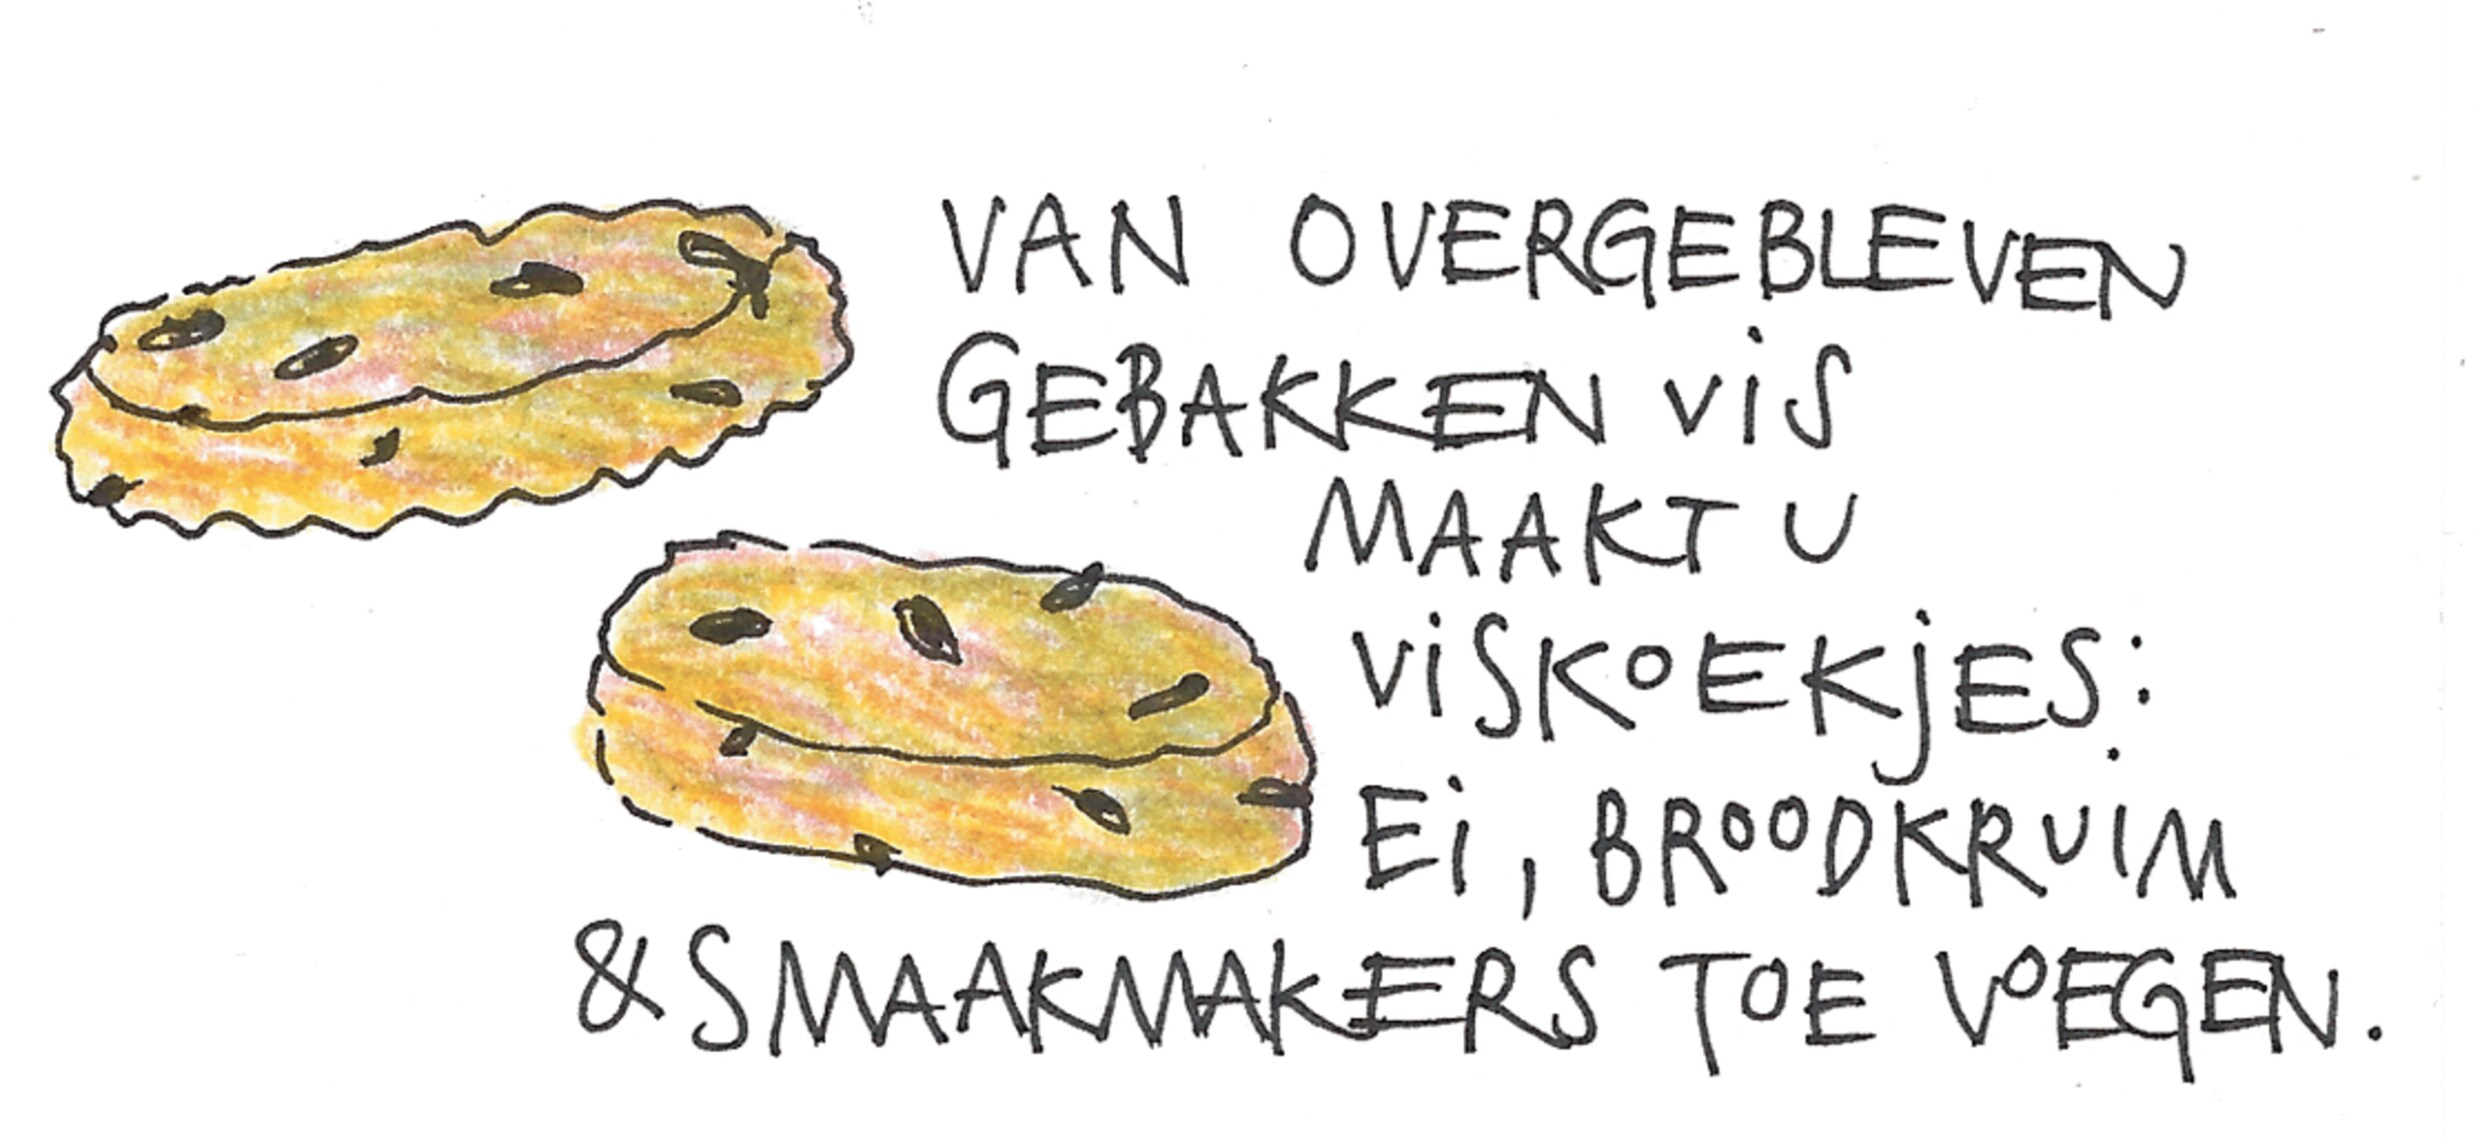 VAN OVERGEBLEVEN
GEBAKKEN ViS
MAAKT U
ViSKOEKjES:
Ei, BROODKRUIM
& SMAAKMAKERS TOE VOEGEN.